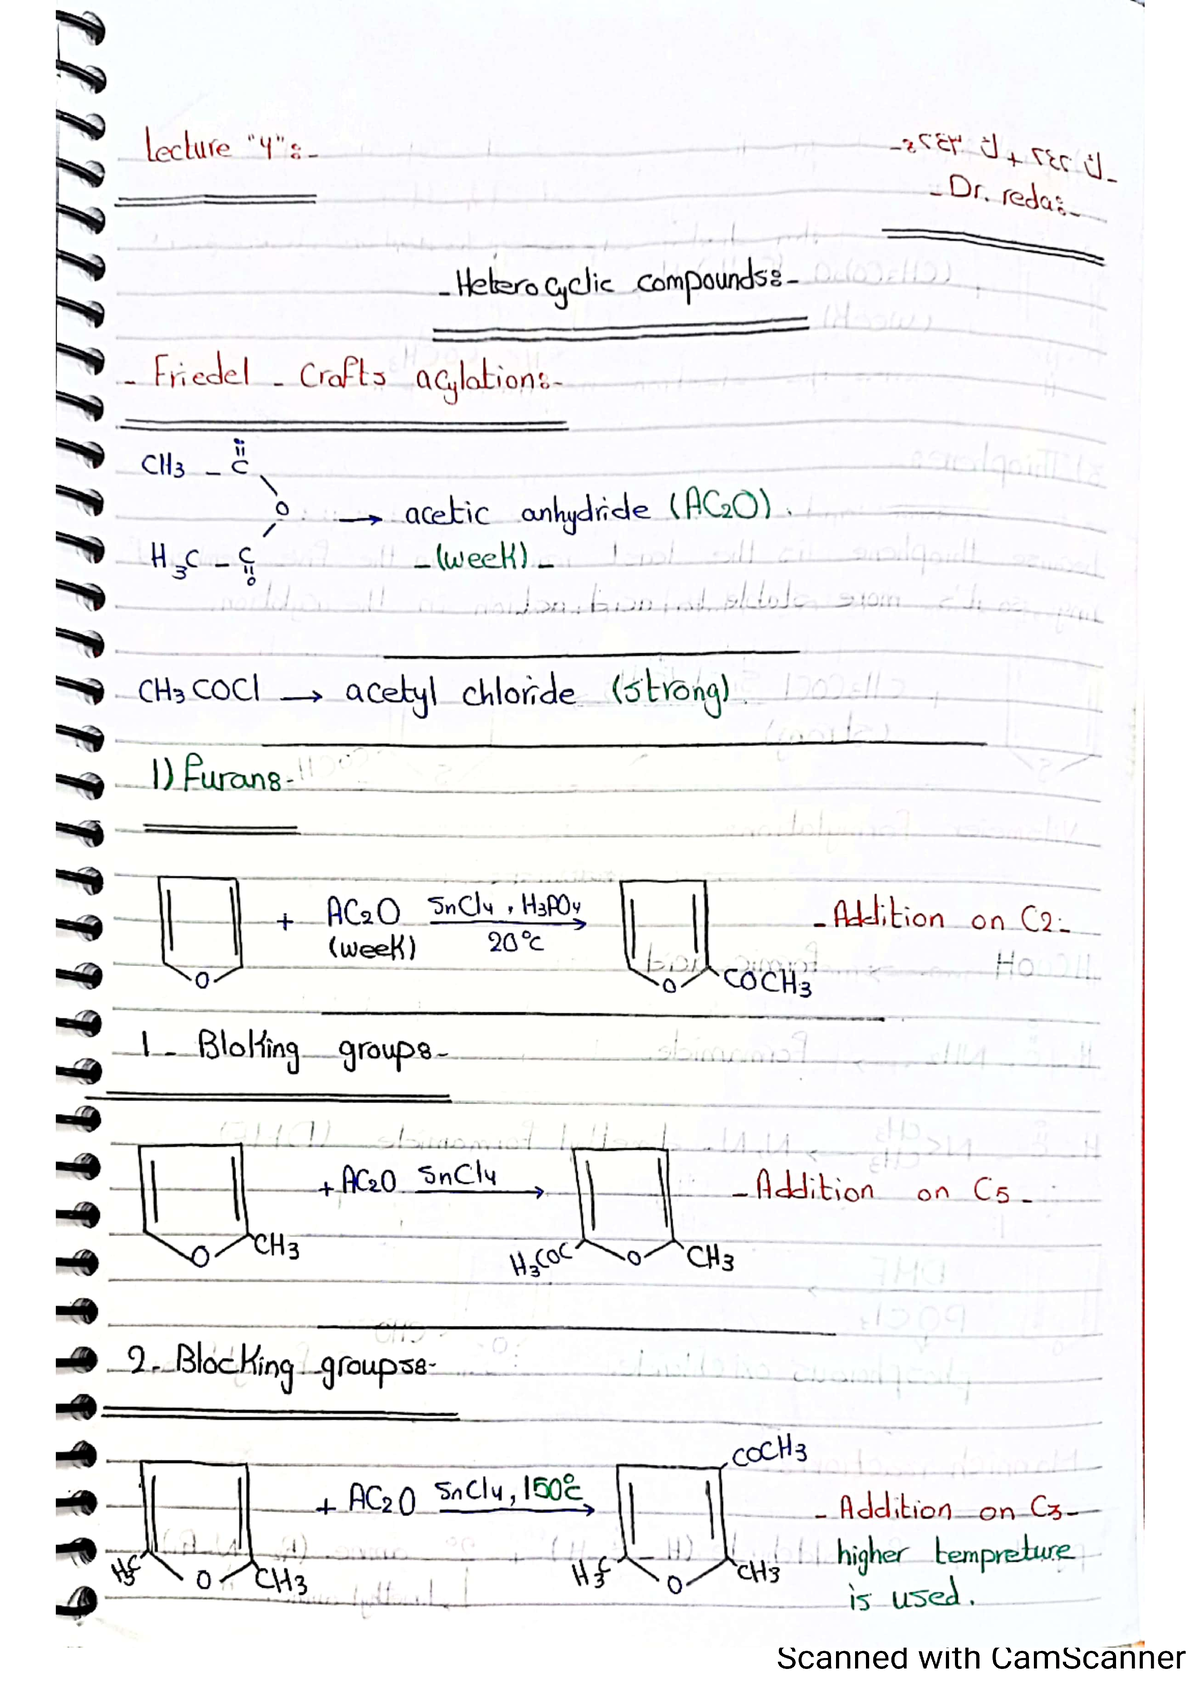 Lecture "4":-
- Dr. reda:-
- Heterocyclic compounds:-
- Friedel - Crafts acylation:-
CH3 - C
O
O → acetic anhydride (AC2O).
H3C - C
O
- (week) -
CH3COCl → acetyl chloride (strong)
1) furan:-
O + AC2O SnCl4, H3PO4 → O COCH3 - Addition on C2-
(week) 20°C
1- Bloking groups-
O CH3 + AC2O SnCl4 → H3COC O CH3 - Addition on C5-
2- Blocking groups:-
COCH3
H3C O CH3 + AC2O SnCl4, 150°C → H3C O CH3 - Addition on C3-
higher tempreture
is used.
Scanned with CamScanner